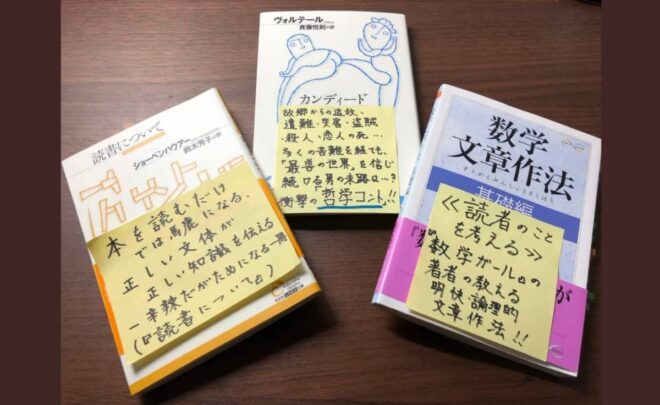 読書について
ショーペンハウアー
鈴木芳子◎訳
本を読むだけ
では馬鹿になる、
正しい文体が
正しい知識を伝える
―辛辣だがためになる一冊
(『読書について』)
ヴォルテール
斉藤悦則◎訳
カンディード
故郷からの追放、
遭難・災害・盗賊
殺人、恋人の死…
多くの苦難を経ても、
「最善の世界」を信じ
続ける男の末路は…?
衝撃の『哲学コント』!!
数学
文章作法
すうがくぶんしょうさくほう
基礎編
≪読者のこと
を考える≫
『数学ガール』の
著者の教える
明快論理的
文章作法!!